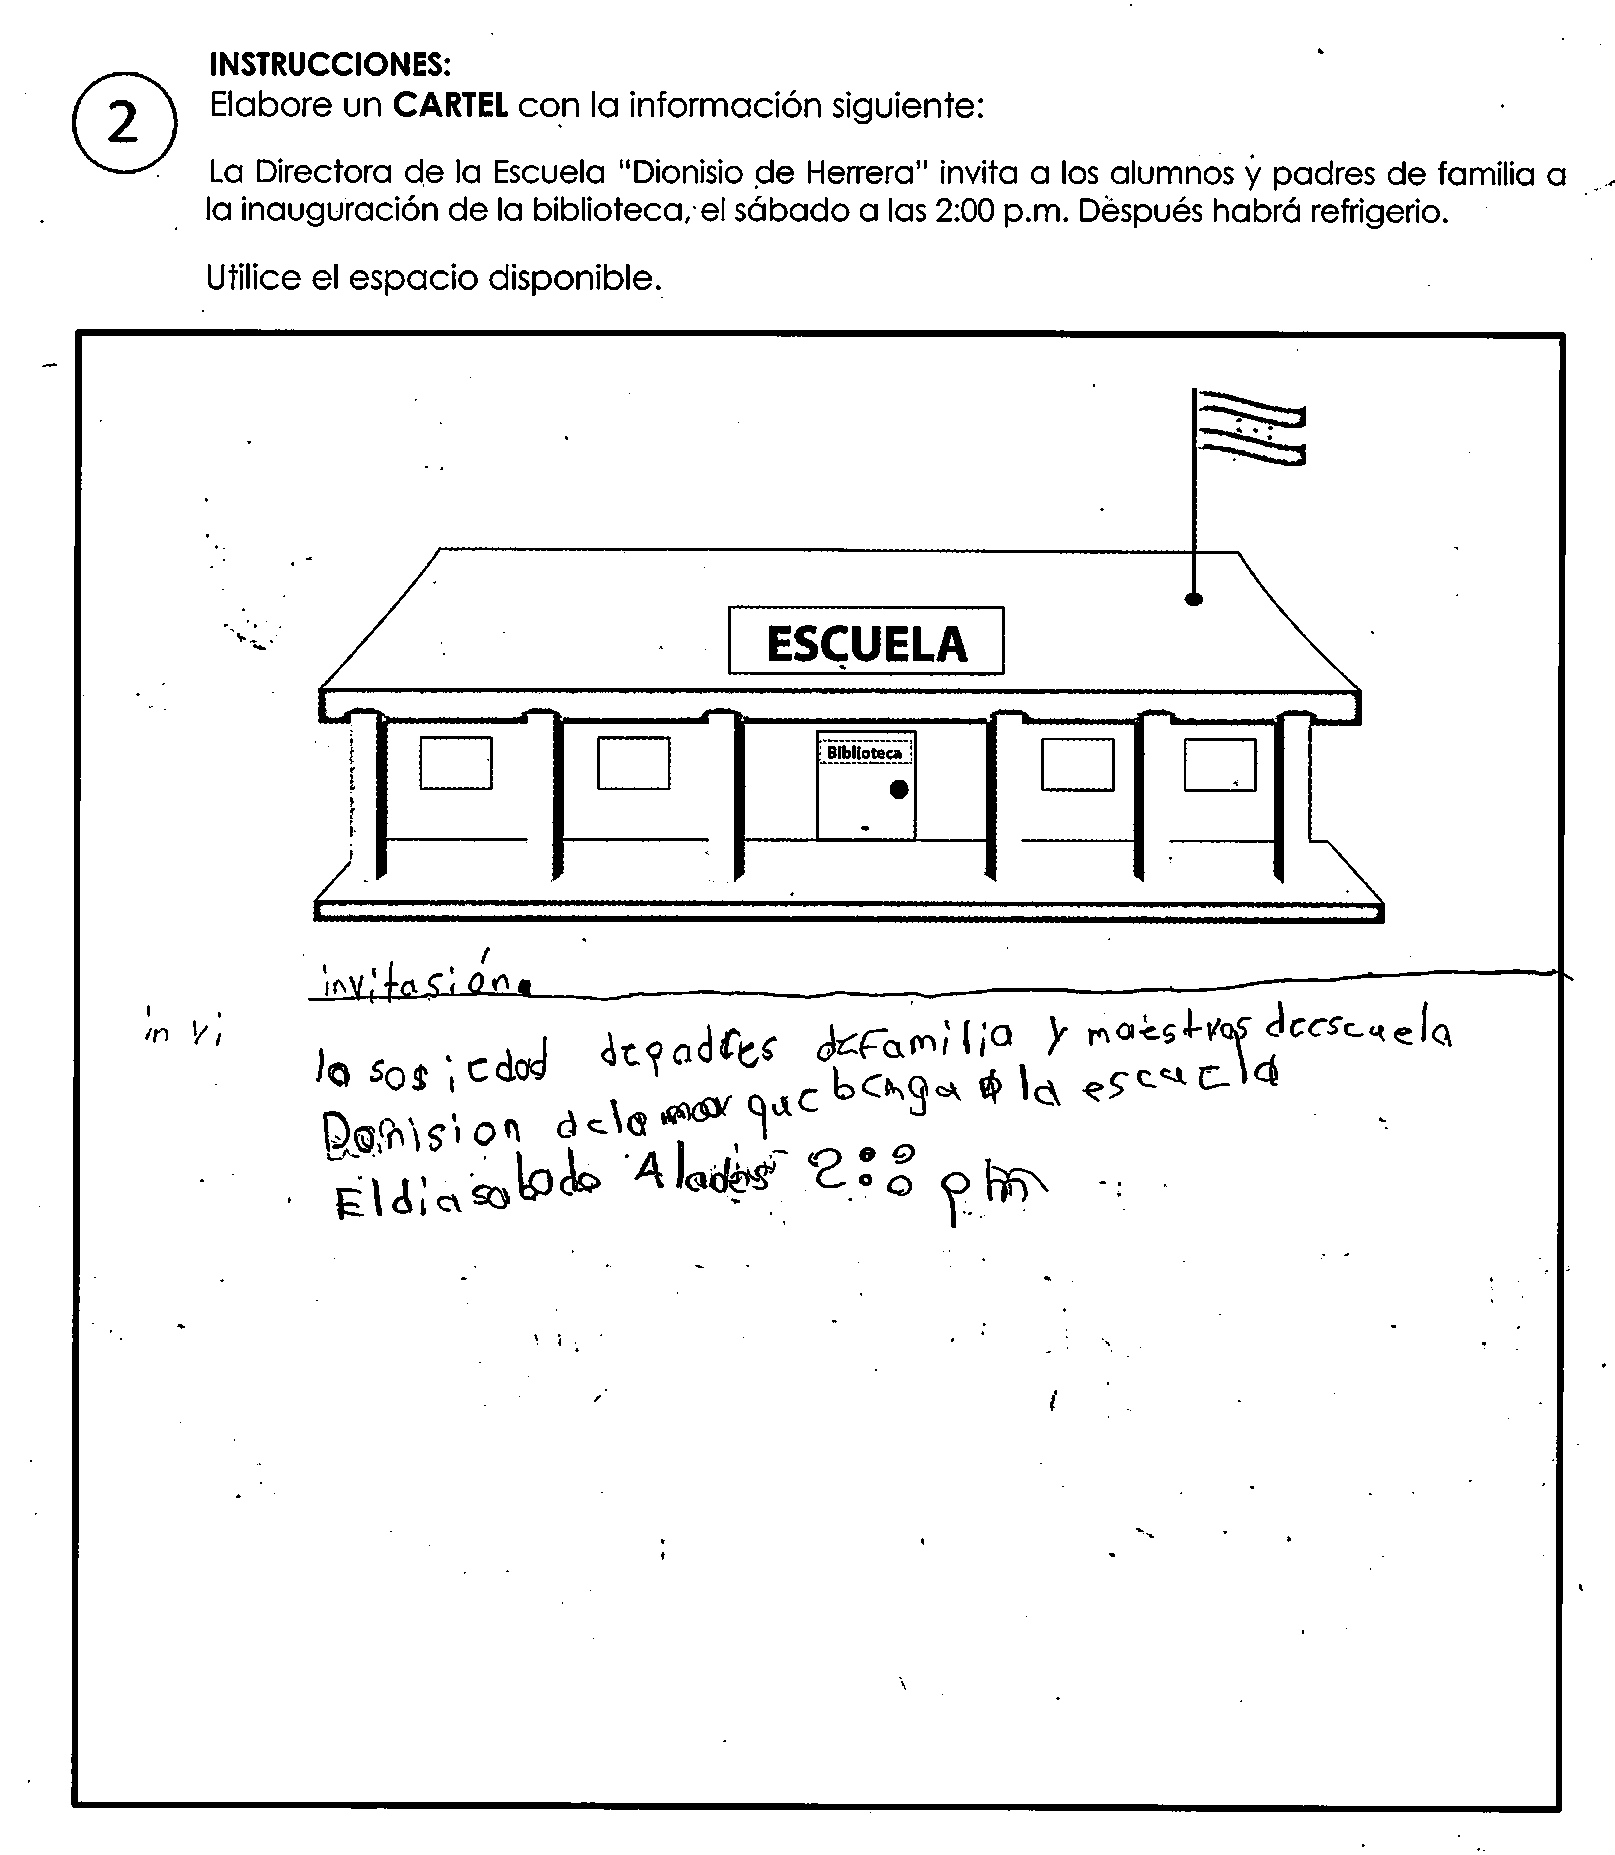 INSTRUCCIONES:
2
Elabore un CARTEL con la información siguiente:
La Directora de la Escuela "Dionisio de Herrera" invita a los alumnos y padres de familia a
la inauguración de la biblioteca, el sábado a las 2:00 p.m. Después habrá refrigerio.
Utilice el espacio disponible.
ESCUELA
Biblioteca
invitasión.
in vi
la sosiedad depadres deFamilia y maestros deescuela
que benga a la escuela
El dia sabado A 2:00 pm